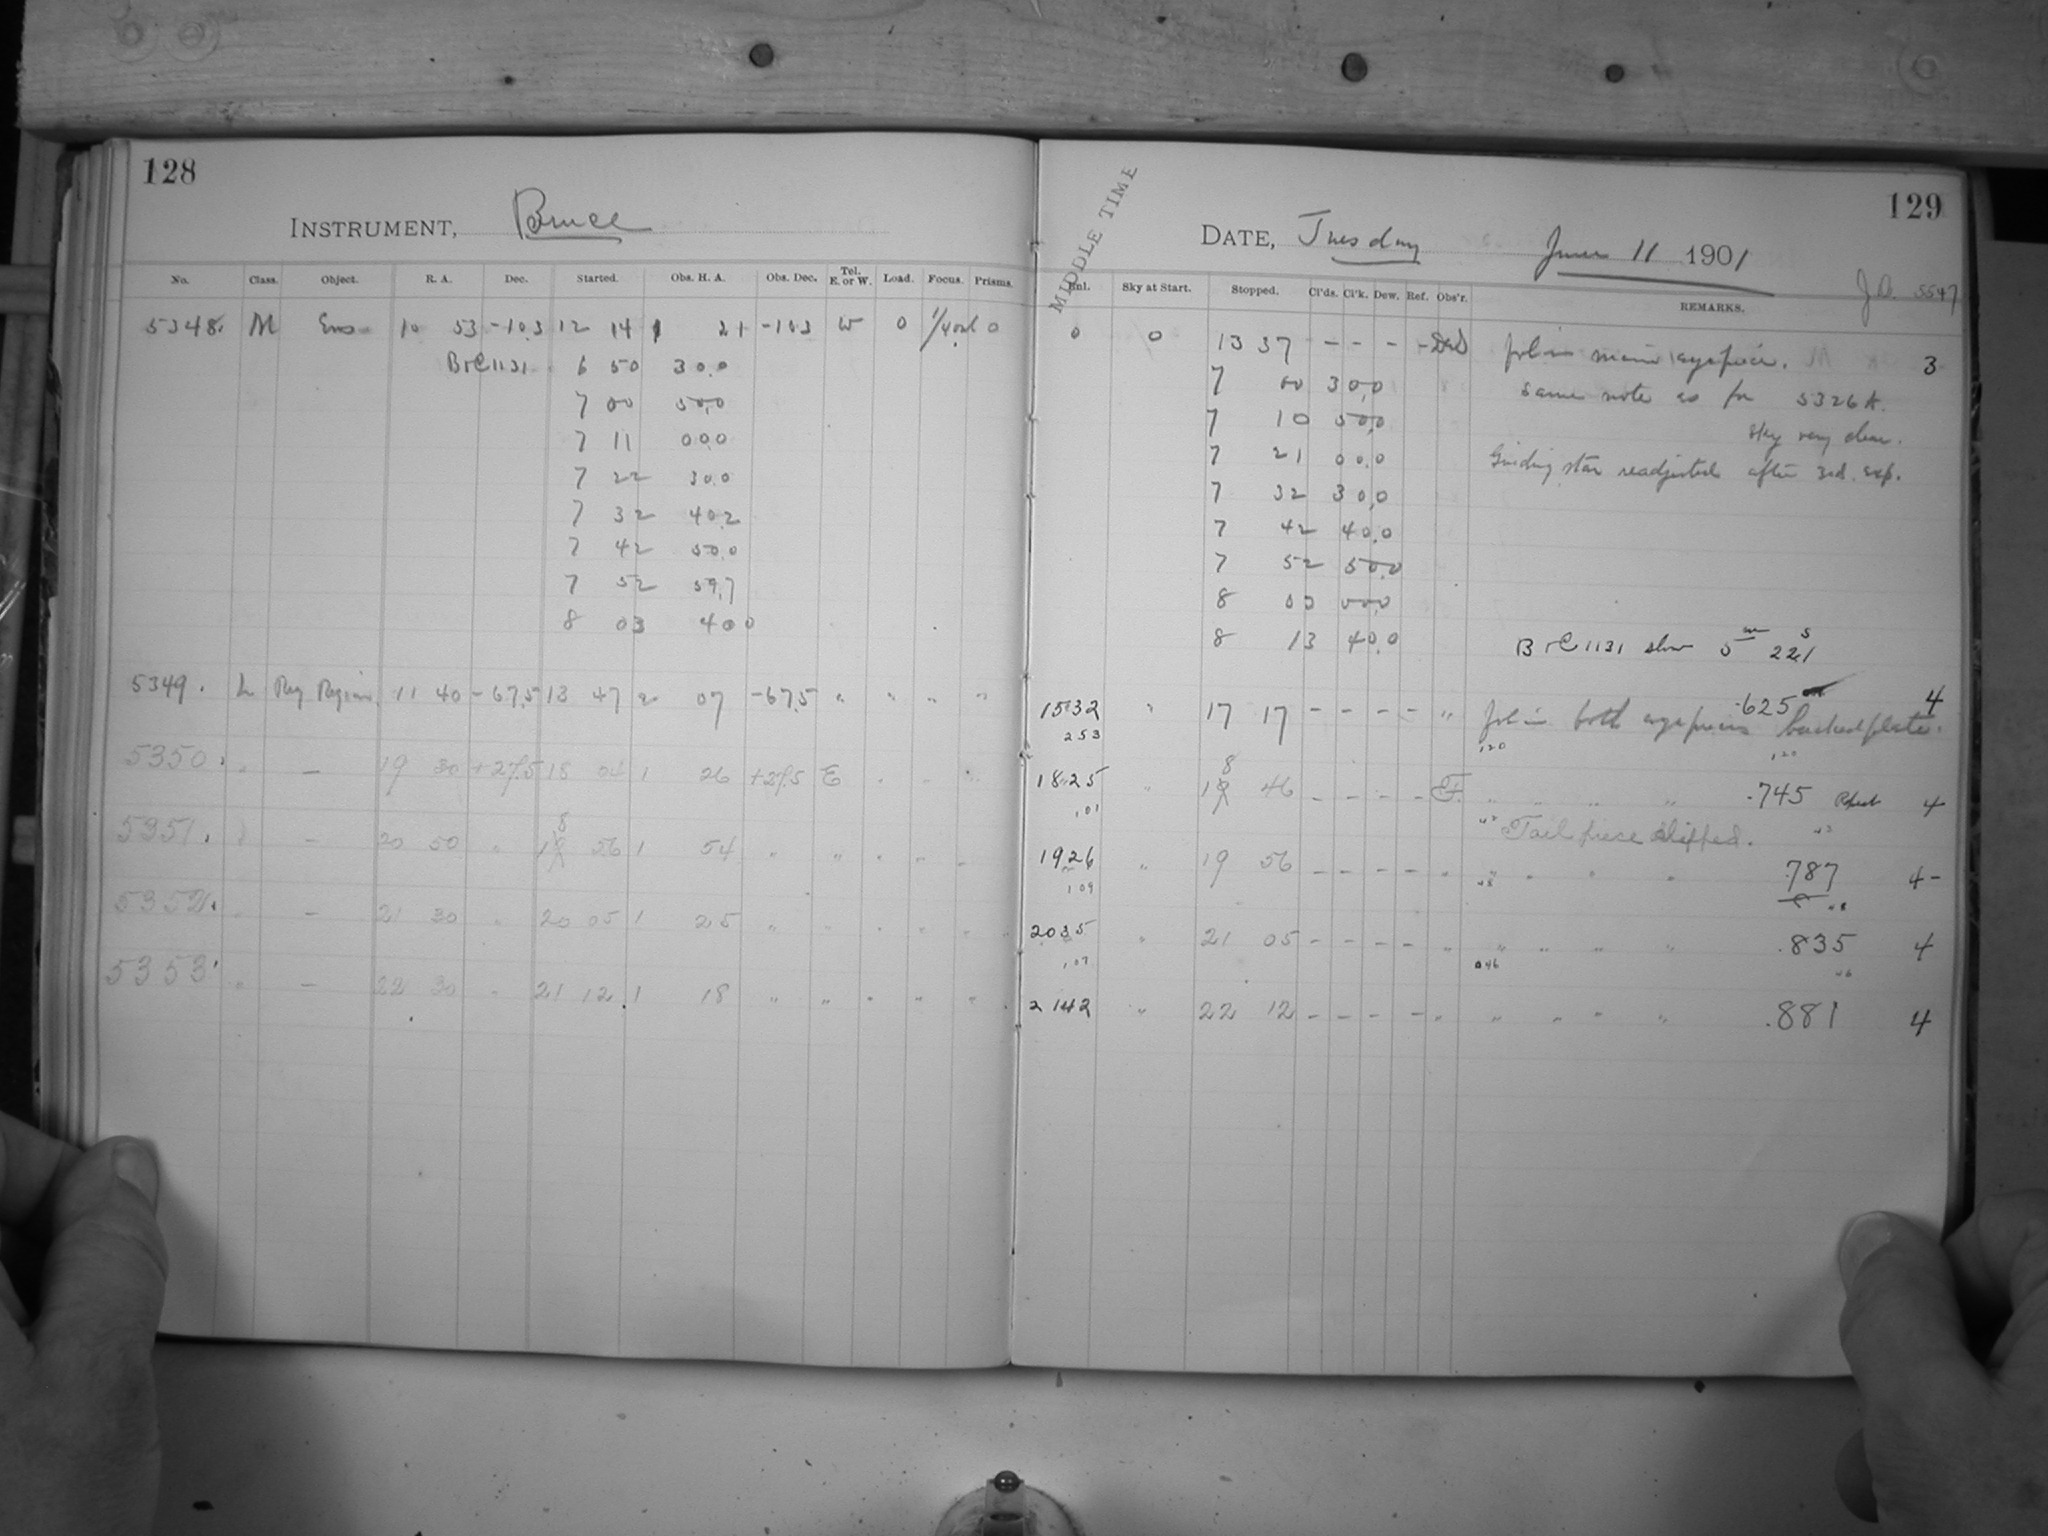 128
INSTRUMENT, Bruce
No. Class. Object. R. A. Dec. Started. Obs. H. A. Obs. Dec. Tel. E. or W. Load. Focus. Prisms.
5348. M Eros 10 53 -10.3 12 14 1 21 -10.3 W 0 0
BrC1131 6 50 30.0
7 00 50.0
7 11 00.0
7 22 30.0
7 32 40.2
7 42 50.0
7 52 59.7
8 03 40.0
5349. L Reg Region 11 40 -67.5 13 47 2 07 -67.5 " " " "
5350. " — 19 30 +27.5 18 04 1 26 +27.5 E " " "
5351. " — 20 50 " 18 56 1 54 " " " " "
5352. " — 21 30 " 20 05 1 25 " " " " " "
5353. " — 22 30 " 21 12 1 18 " " " " "
129
MIDDLE TIME
DATE, Tuesday June 11 1901
J.D. 5547
Enl. Sky at Start. Stopped. Cl'ds. Cl'k. Dew. Ref. Obs'r. REMARKS.
0 0 13 37 - - - - fol in main eyepiece. 3
7 00 30.0 same note as for 5326A.
7 10 50.0 sky very clear.
7 21 00.0 Guiding star readjusted after 3rd. exp.
7 32 30.0
7 42 40.0
7 52 50.0
8 03 00.0
8 13 40.0 BrC1131 slow 5m 22.1s
1532 " 17 17 - - - - " fol in both eyepieces .625 backed plate. 4
253 120 120
1825 " 18 46 - - - - F. " " " " .745 4
101 42 Tail piece slipped. 42
1926 " 19 56 - - - - " " " " " .787 4-
109 48 48
2035 " 21 05 - - - - " " " " " .835 4
107 046 46
2142 " 22 12 - - - - " " " " " .881 4